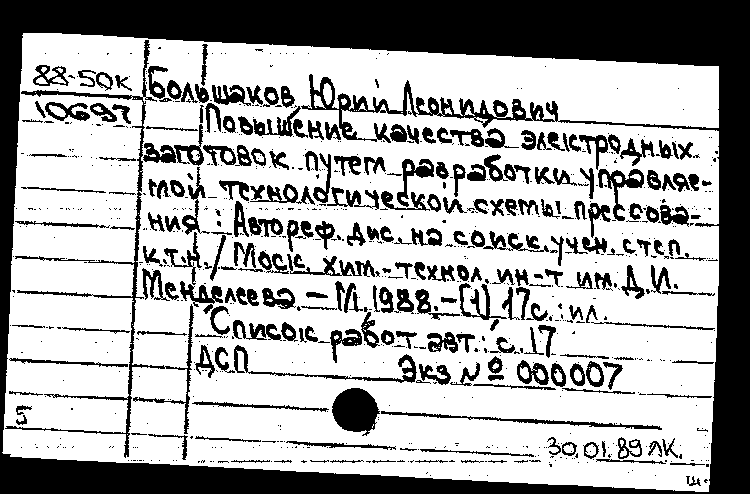 88-50к Большаков Юрий Леонидович
10697 Повышение качества электродных
заготовок путем разработки управляе-
мой технологической схемы прессова-
ния : Автореф. дис. на соиск. учен. степ.
к.т.н. / Моск. хим.-технол. ин-т им. Д.И.
Менделеева. — М. 1988. — [1] 17с. : ил.
Список работ авт.: с. 17
ДСП Экз № 000007
5
30.01.89 ЛК.